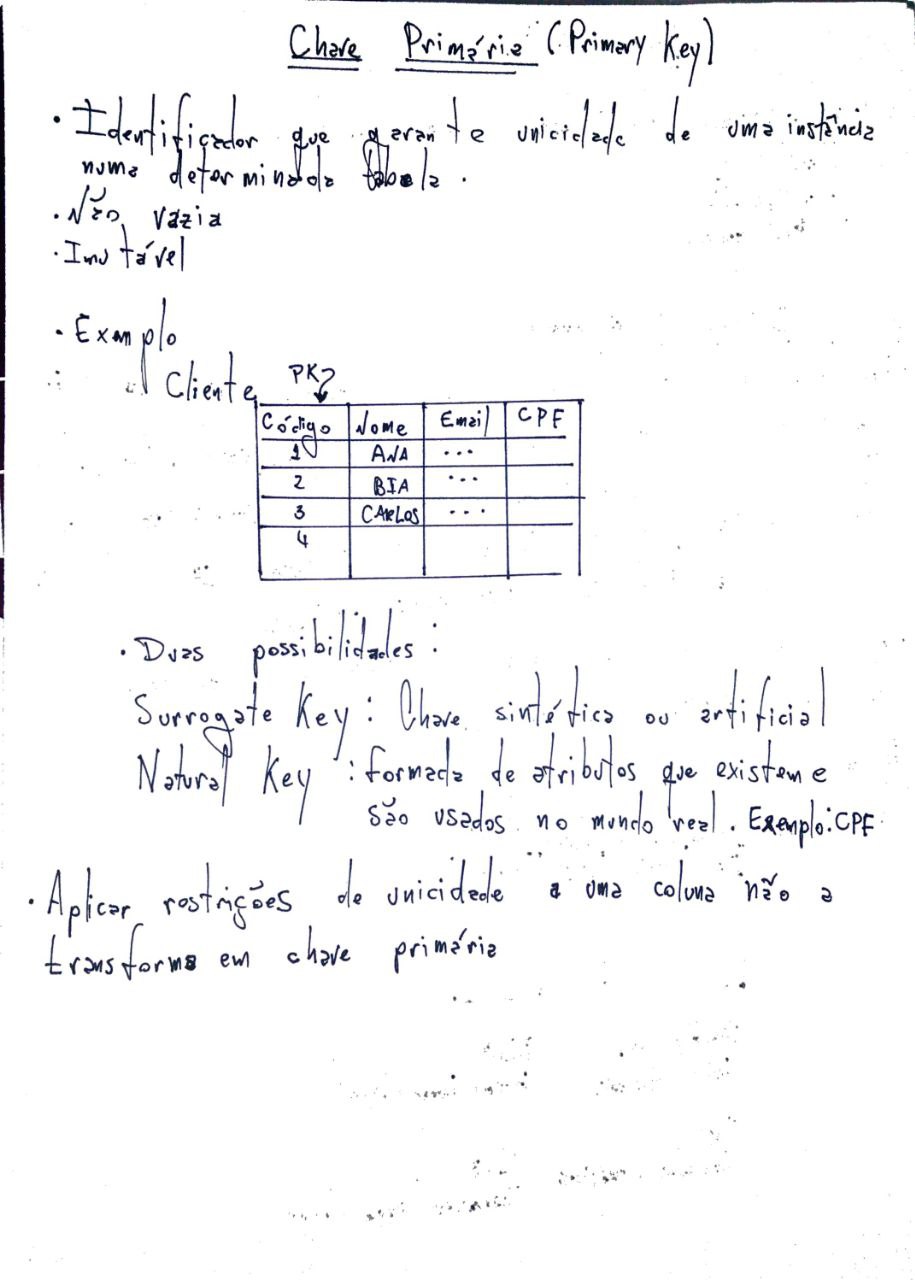 Chave Primária (Primary Key)
· Identificador que garante unicidade de uma instância
numa determinada tabela.
· Não vazia
· Imutável
· Exemplo
Cliente PK
Código Nome Email CPF
1 ANA ...
2 BIA ...
3 CARLOS ...
4
· Duas possibilidades:
Surrogate Key: Chave sintética ou artificial
Natural Key: formada de atributos que existem e
são usados no mundo real. Exemplo: CPF
· Aplicar restrições de unicidade a uma coluna não a
transforma em chave primária